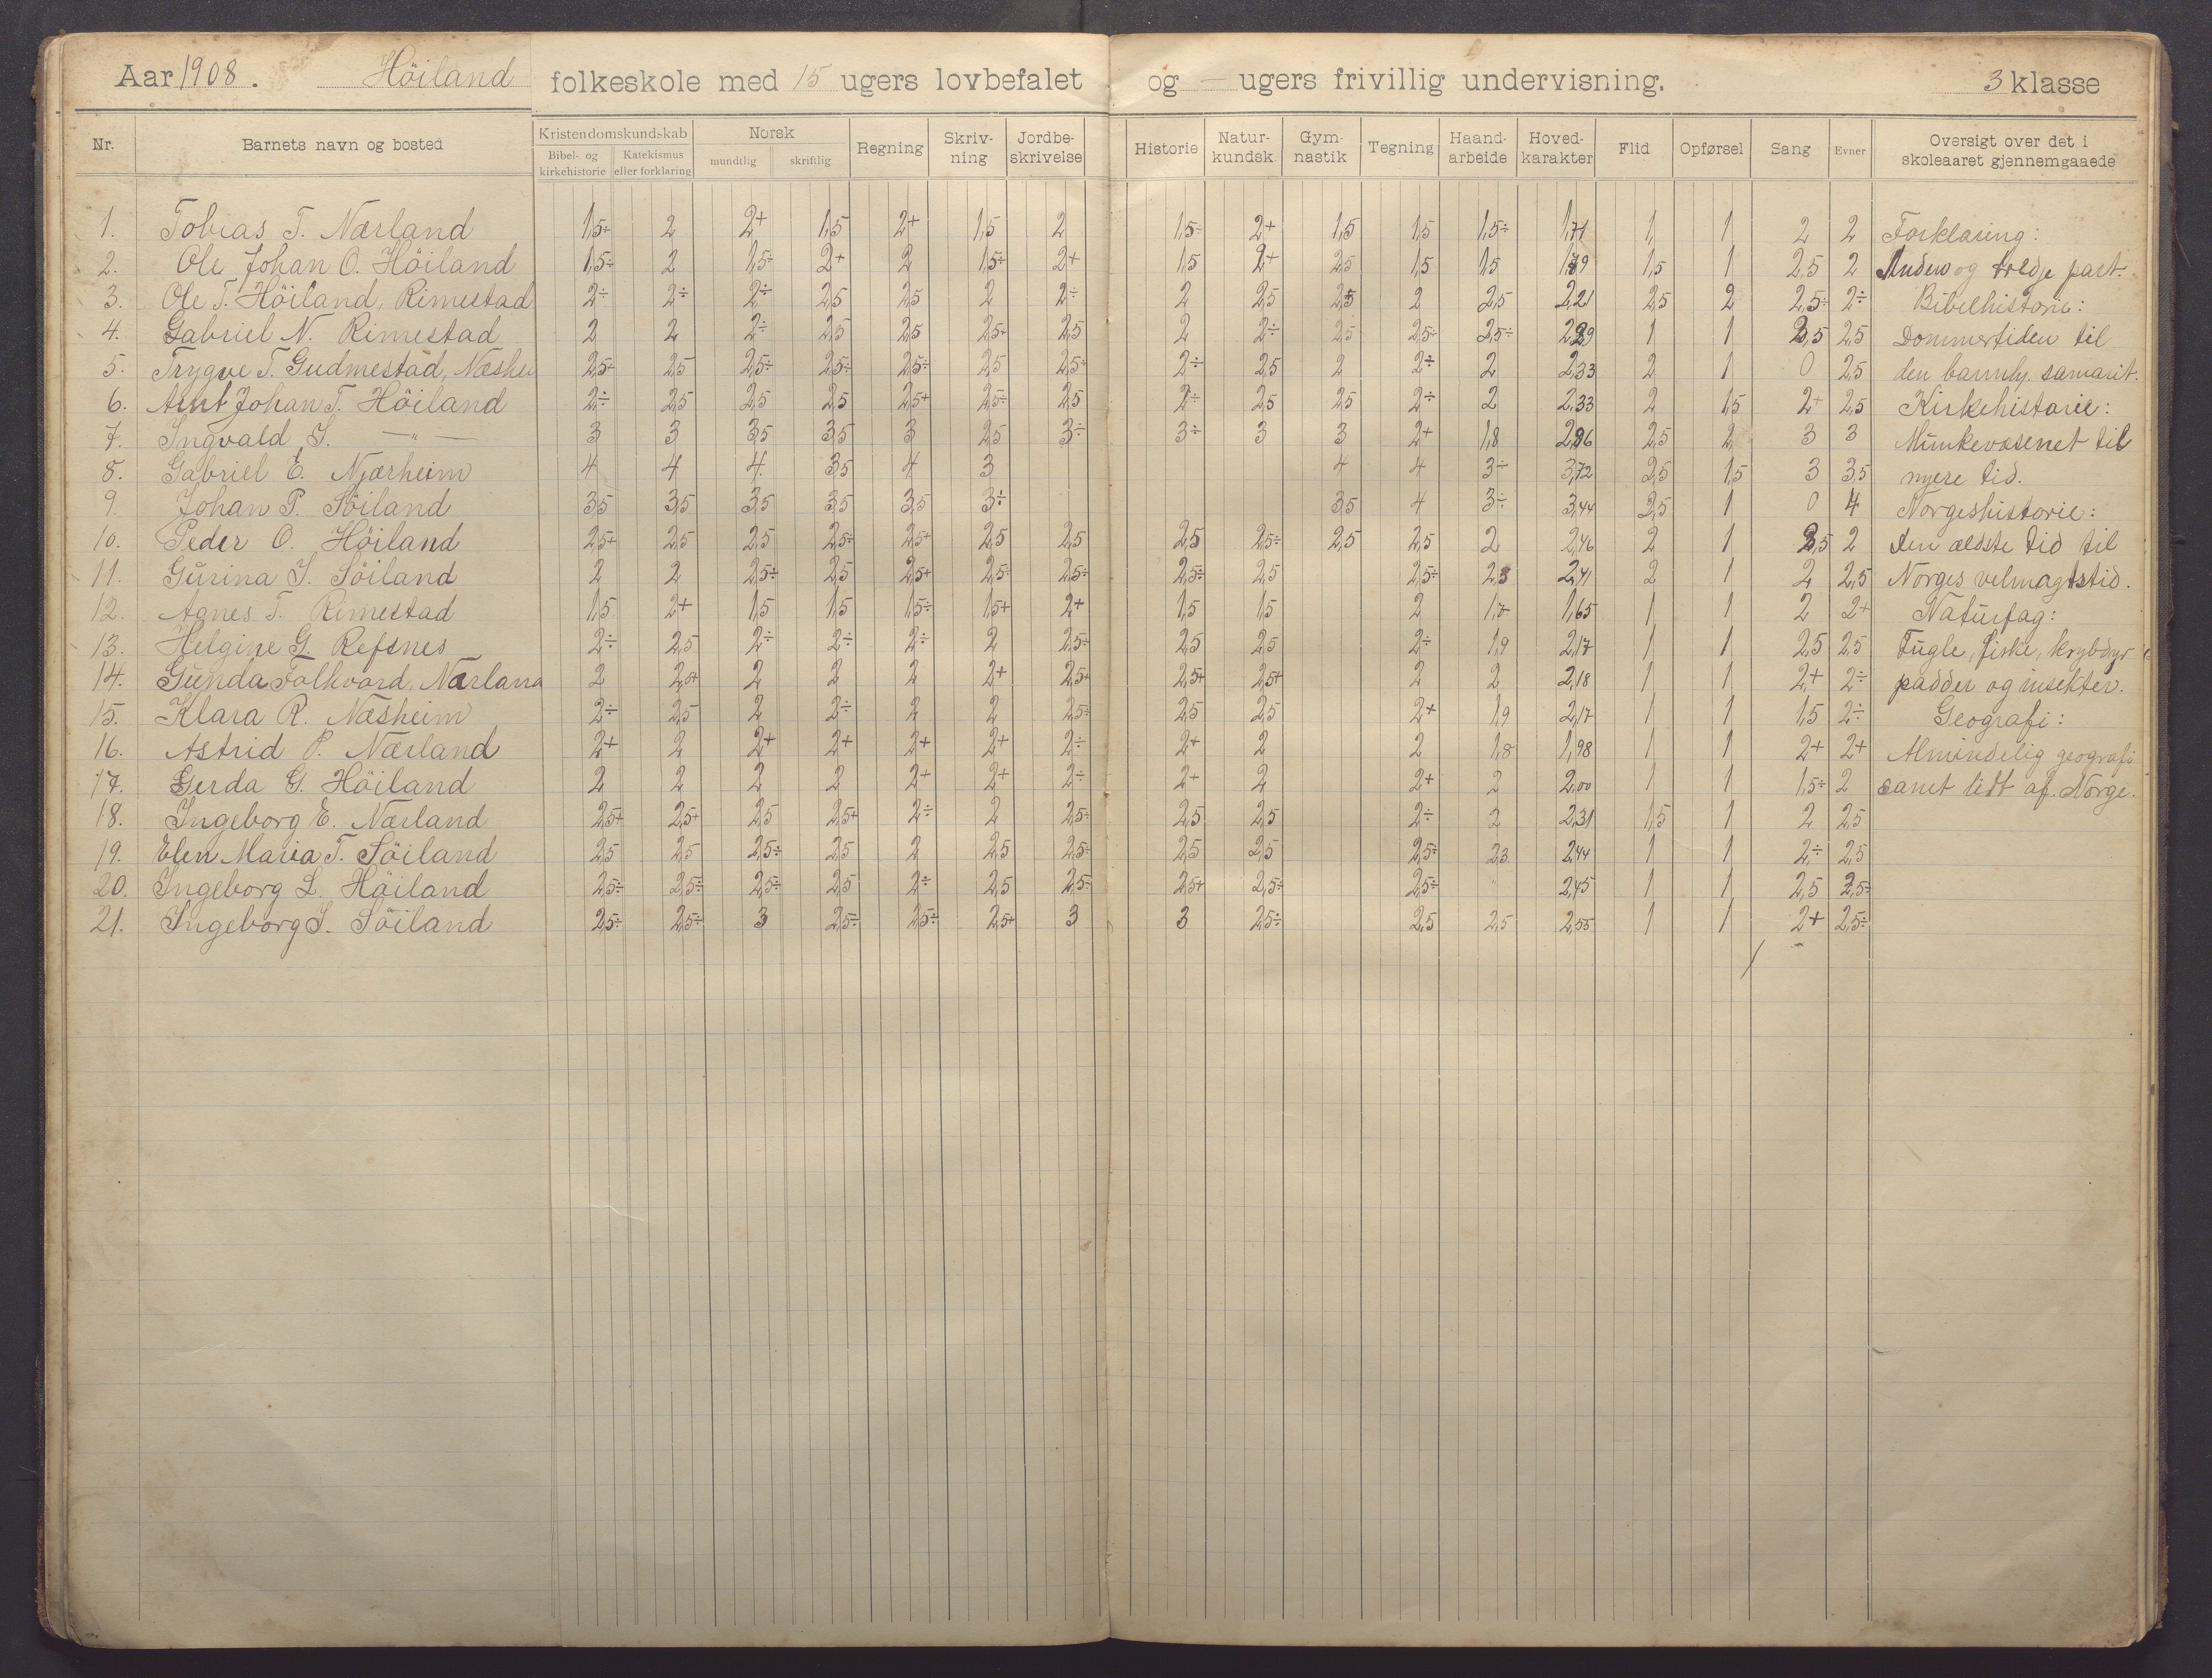 Aar 1908. Höiland folkeskole med 15 ugers lovbefalet og — ugers frivillig undervisning. 3 klasse
Nr. Barnets navn og bosted Kristendomskundskab Norsk Regning Skriv-ning Jordbe-skrivelse Historie Natur-kundsk. Gym-nastik Tegning Haand-arbeide Hoved-karakter Flid Opførsel Sang Evner Oversigt over det i skoleaaret gjennemgaaede
Bibel- og kirkehistorie Katekismus eller forklaring mundtlig skriftlig
1. Tobias T. Nærland 1,5÷ 2 2+ 1,5 2+ 1,5 2 1,5÷ 2+ 1,5 1,5 1,5÷ 1,71 1 1 2 2 Forklaring:
2. Ole Johan O. Höiland 1,5÷ 2 1,5÷ 2+ 2 1,5÷ 2+ 1,5 2+ 2,5 1,5 1,5 1,79 1,5 1 2,5 2 Anden og tredje part.
3. Ole T. Höiland, Rimestad 2÷ 2÷ 2÷ 2,5 2,5 2 2÷ 2 2,5 2,5 2 2,5 2,21 2,5 2 2,5÷ 2÷ Bibelhistorie:
4. Gabriel N. Rimestad 2 2 2÷ 2,5 2,5 2,5+ 2,5 2 2÷ 2,5 2,5÷ 2,5÷ 2,29 1 1 2,5 2,5 Dommertiden til
5. Trygve T. Gudmestad, Næshei 2,5+ 2,5 2,5÷ 2,5÷ 2,5÷ 2,5 2,5+ 2÷ 2,5 2 2÷ 2 2,33 2 1 0 2,5 den barmhj. samarit.
6. Arnt Johan T. Höiland 2÷ 2,5 2,5 2,5 2,5+ 2,5÷ 2,5 2÷ 2,5 2,5 2÷ 2 2,33 2 1,5 2+ 2,5 Kirkehistorie:
7. Ingvald I. —„— 3 3 3,5 3,5 3 2,5 3÷ 3÷ 3 3 2+ 1,8 2,96 2,5 2 3 3 Munkevæsenet til
8. Gabriel E. Njærheim 4 4 4 3,5 4 3 4 4 3÷ 3,72 2,5 1,5 3 3,5 nyere tid.
9. Johan P. Söiland 3,5 3,5 3,5 3,5 3,5 3÷ 3,5 4 3÷ 3,44 2,5 1 0 4 Norgeshistorie:
10. Peder O. Höiland 2,5+ 2,5 2,5 2,5÷ 2,5+ 2,5 2,5 2,5 2,5÷ 2,5 2,5 2 2,46 2 1 2,5 2 den ældste tid til
11. Gurina I. Söiland 2 2 2,5÷ 2,5 2,5+ 2,5÷ 2,5÷ 2,5÷ 2,5 2,5÷ 2,3 2,41 2 1 2 2,5 Norges velmagtstid.
12. Agnes T. Rimestad 1,5 2+ 1,5 1,5 1,5÷ 1,5+ 2+ 1,5 1,5 2 1,7 1,65 1 1 2 2+ Naturfag:
13. Helgine G. Refsnes 2÷ 2,5 2÷ 2÷ 2÷ 2 2,5÷ 2,5 2,5 2÷ 1,9 2,17 1 1 2,5 2,5 Fugle, fiske, krybdyr
14. Gunda Folkvord, Nærland 2 2,5+ 2 2 2 2+ 2,5+ 2,5+ 2,5+ 2 2 2,18 1 1 2+ 2÷ padder og insekter.
15. Klara R. Næsheim 2÷ 2,5 2 2÷ 2 2 2,5÷ 2,5 2,5 2+ 1,9 2,17 1 1 1,5 2÷ Geografi:
16. Astrid P. Nærland 2+ 2 2+ 2+ 2+ 2+ 2÷ 2+ 2 2 1,8 1,98 1 1 2+ 2+ Almindelig geografi
17. Gerda G. Höiland 2 2 2 2 2+ 2+ 2÷ 2+ 2 2+ 2 2,00 1 1 1,5÷ 2 samt lidt af Norge.
18. Ingeborg E. Nærland 2,5+ 2,5+ 2,5 2,5+ 2÷ 2 2,5÷ 2,5 2,5 2÷ 2 2,31 1,5 1 2 2,5
19. Elen Maria T. Söiland 2,5 2,5 2,5÷ 2,5 2 2,5 2,5÷ 2,5 2,5 2,5÷ 2,3 2,44 1 1 2÷ 2,5
20. Ingeborg L. Höiland 2,5÷ 2,5÷ 2,5÷ 2,5 2÷ 2,5 2,5÷ 2,5+ 2,5÷ 2,5÷ „ 2,45 1 1 2,5 2,5÷
21. Ingeborg I. Söiland 2,5÷ 2,5÷ 3 2,5÷ 2,5÷ 2,5+ 3 3 2,5÷ 2,5 2,5 2,55 1 1 2+ 2,5÷